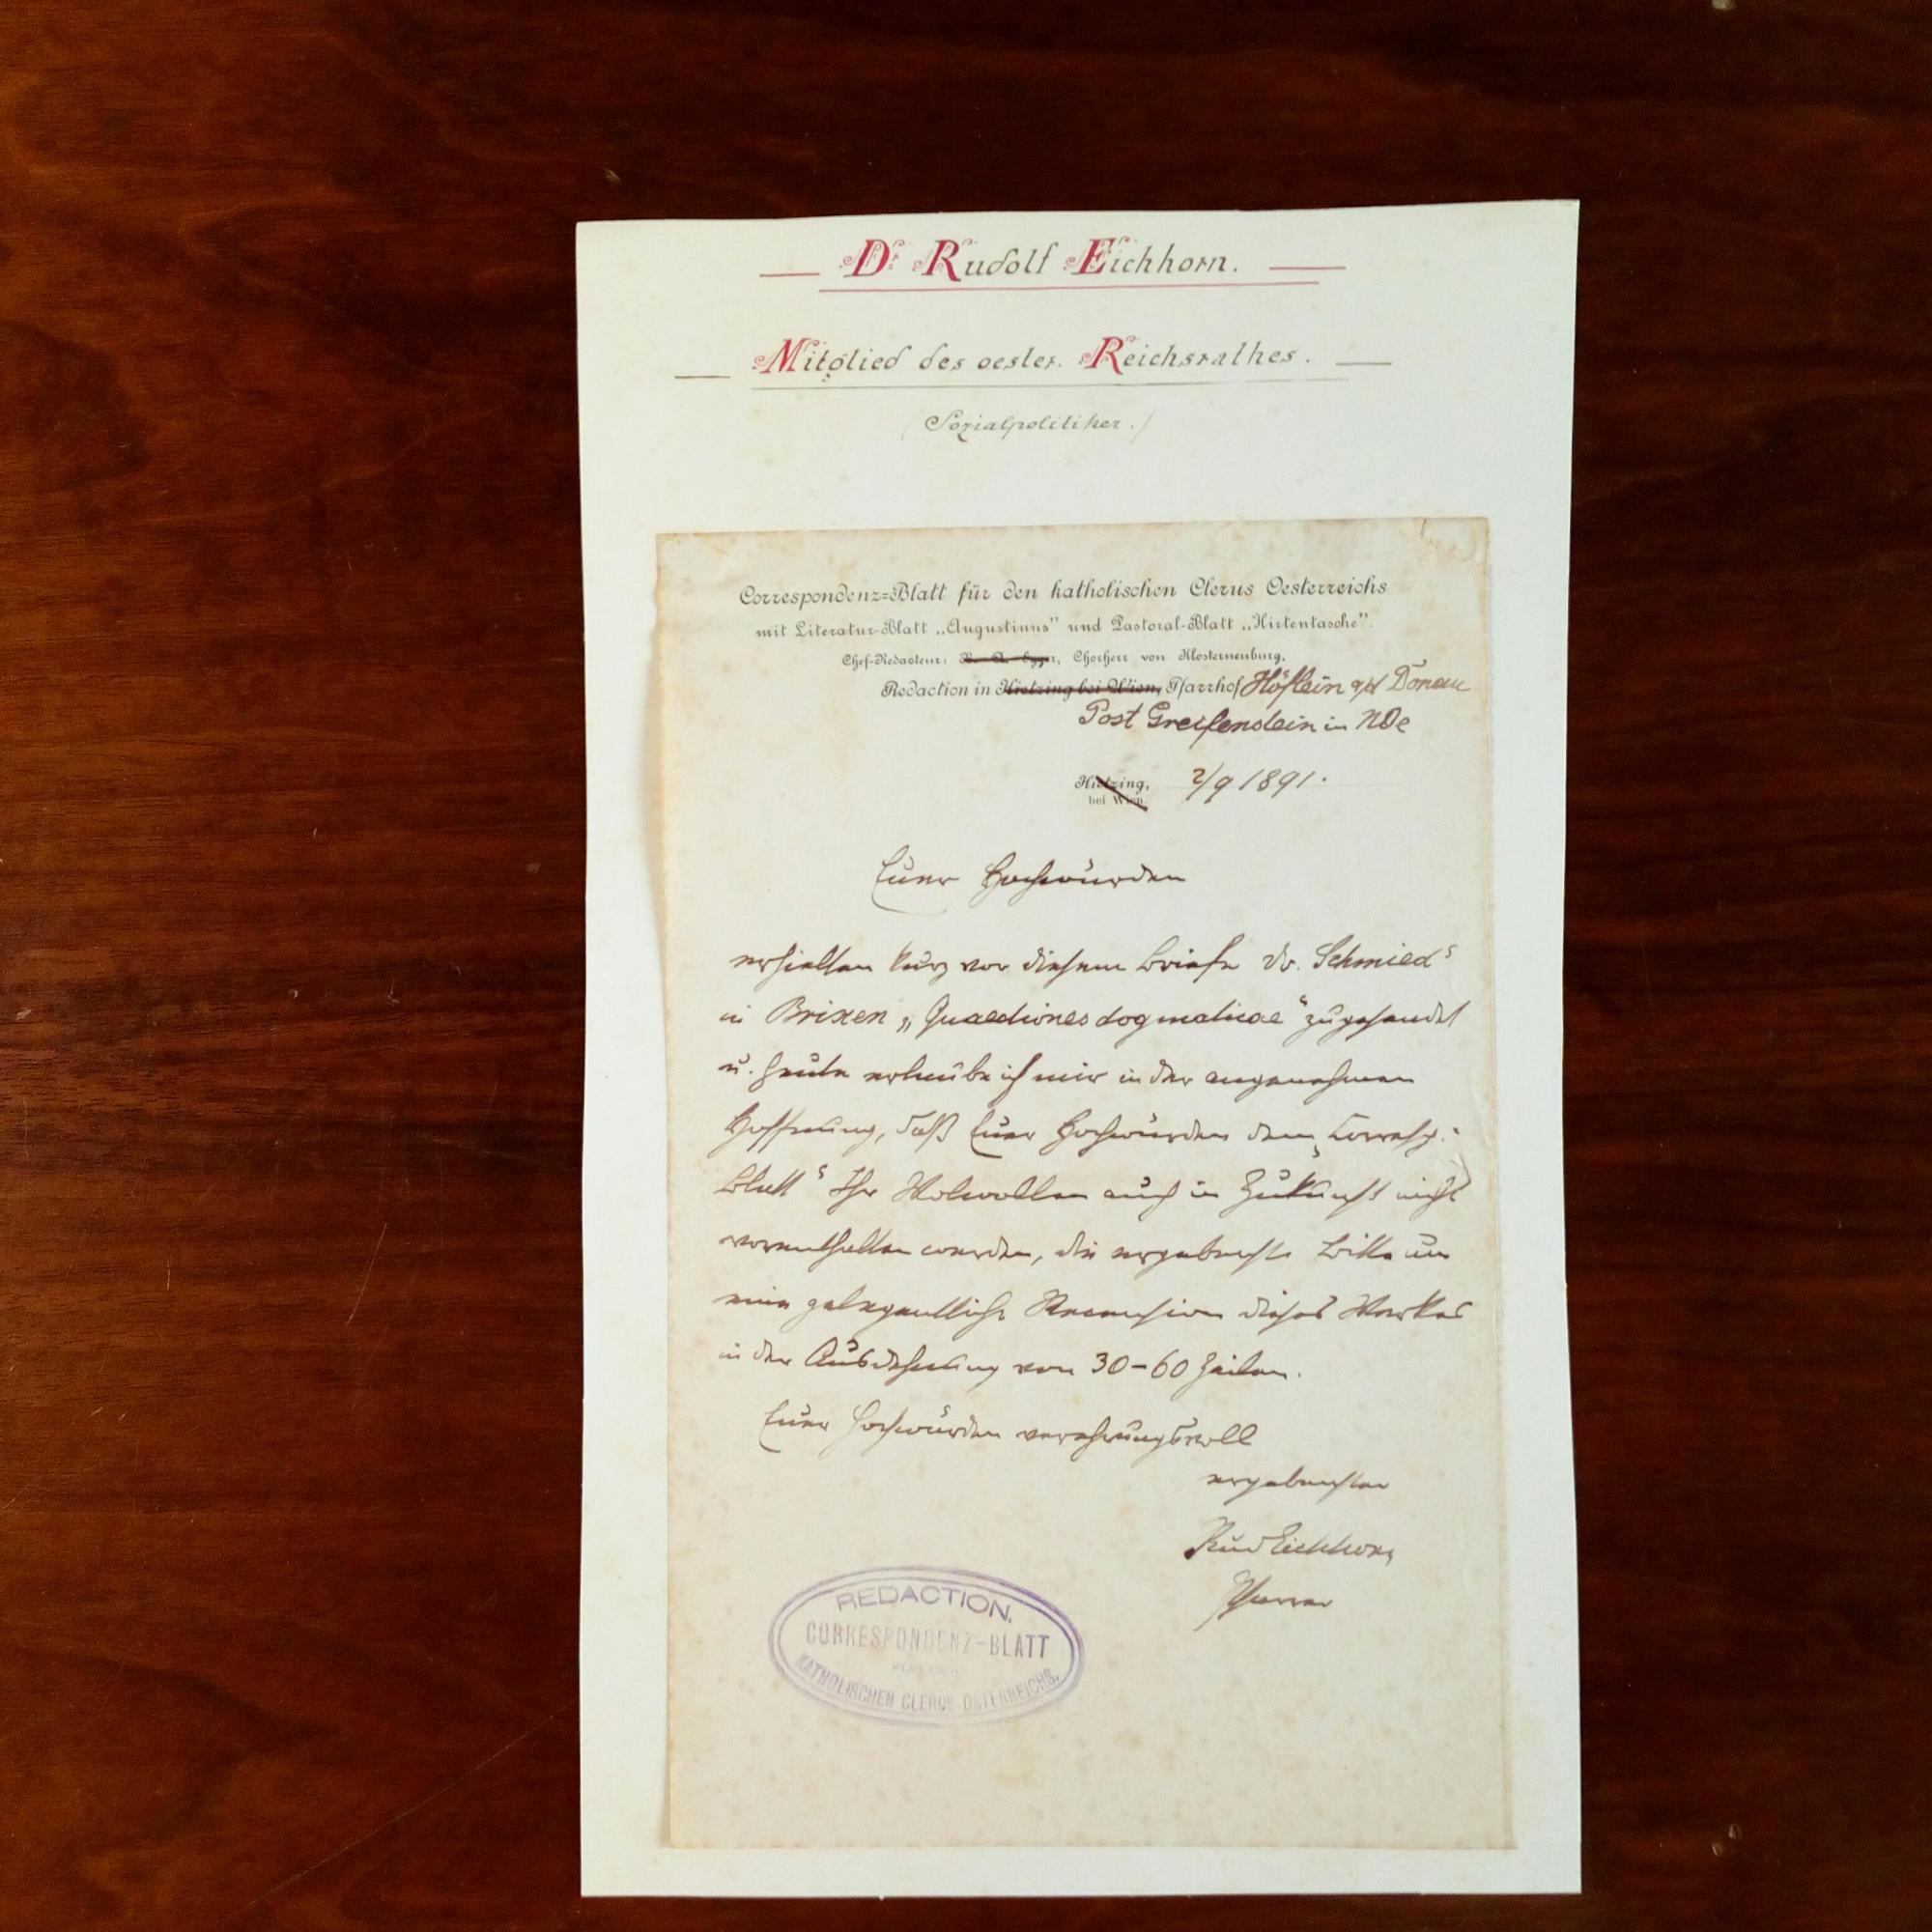 Dr Rudolf Eichhorn.
Mitglied des oester. Reichsrathes.
(Sozialpolitiker.)
Correspondenz=Blatt für den katholischen Clerus Oesterreichs
mit Literatur-Blatt „Augustinus" und Pastoral-Blatt „Hirtentasche".
Chef-Redacteur: B. A. Egger, Chorherr von Klosterneuburg.
Redaction in Hietzing bei Wien, Pfarrhof Höflein a/d Donau
Post Greifenstein in NOe
Hietzing, 2/9 1891.
bei Wien
Euer Hochwürden
erhielten kurz vor diesem Briefe Dr. Schmied's
in Brixen „Quaestiones dogmaticae" zugesandt
u. heute erlaube ich mir in der angenehmen
Hoffnung, daß Euer Hochwürden dem „Corresp.-
Blatt" Ihr Wolwollen auch in Zukunft nicht
vorenthalten werden, die ergebenste Bitte um
eine gelegentliche Recension dieses Werkes
in der Ausdehnung von 30-60 Zeilen.
Euer Hochwürden verehrungsvoll
ergebenster
Rud Eichhorn
Pfarrer
REDACTION.
CORRESPONDENZ-BLATT
FÜR DEN
KATHOLISCHEN CLERUS ÖSTERREICHS.